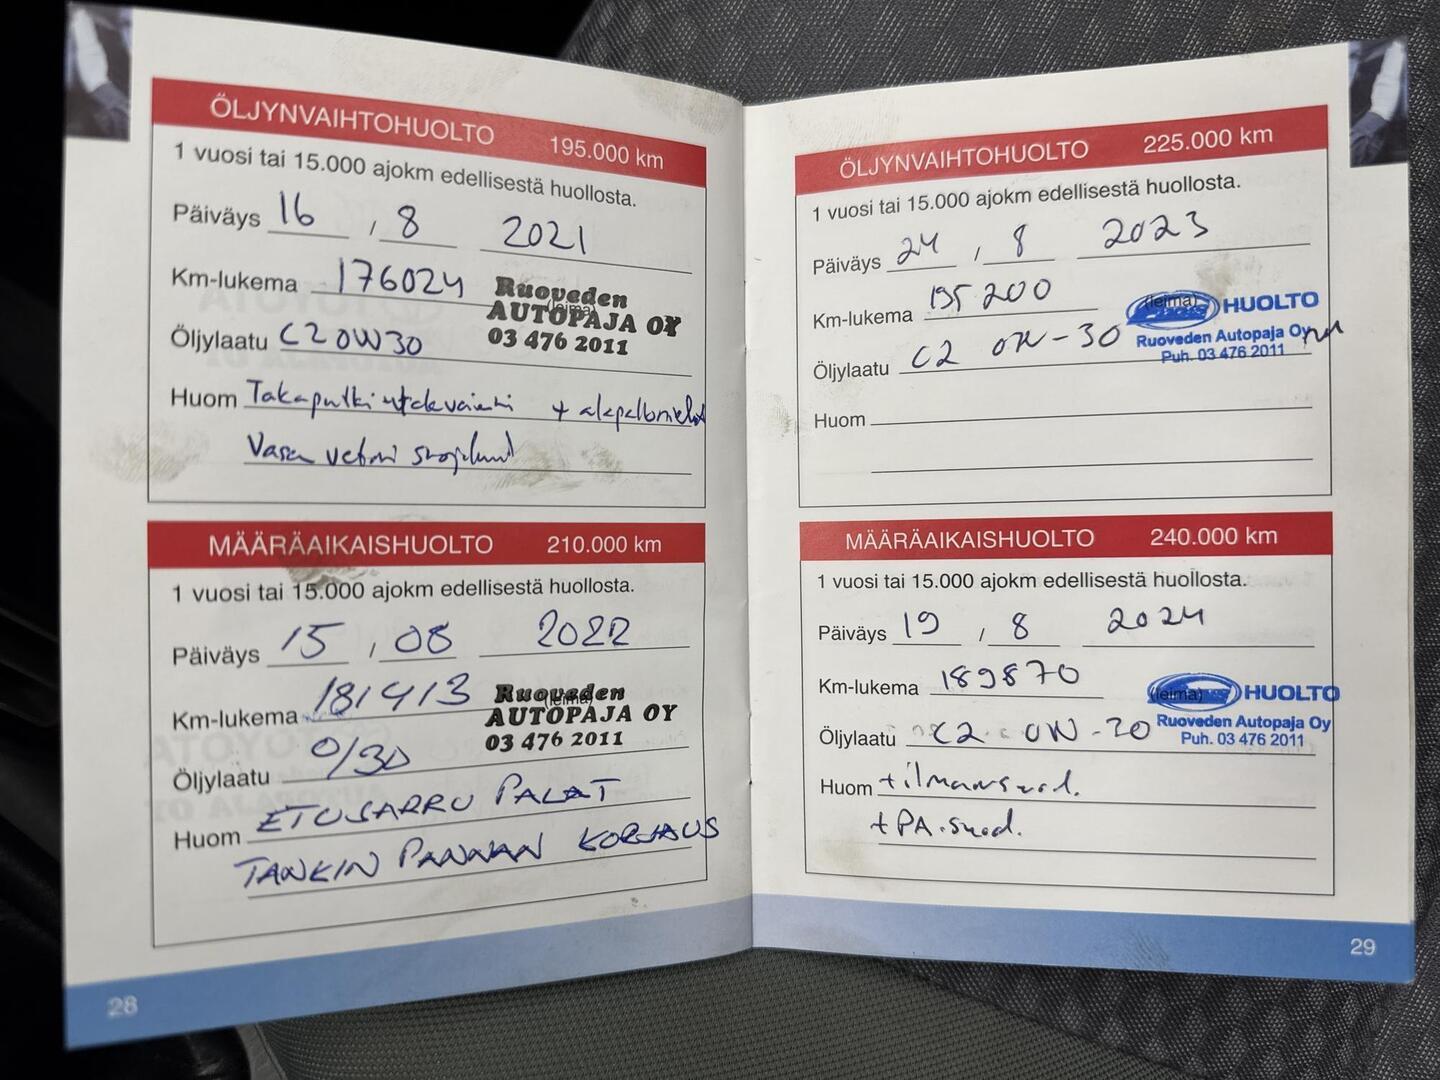 ÖLJYNVAIHTOHUOLTO 195.000 km
1 vuosi tai 15.000 ajokm edellisestä huollosta.
Päiväys 16 , 8 2021
Km-lukema 176024
(leima)
Ruoveden
AUTOPAJA OY
03 476 2011
Öljylaatu C2 0W30
Huom Takaputki + alapallonivel
Vasen vetoniv suojakumi
MÄÄRÄAIKAISHUOLTO 210.000 km
1 vuosi tai 15.000 ajokm edellisestä huollosta.
Päiväys 15 , 08 2022
Km-lukema 181413
(leima)
Ruoveden
AUTOPAJA OY
03 476 2011
Öljylaatu 0/30
Huom ETUJARRU PALAT
TANKIN PANNAN KORJAUS
28
ÖLJYNVAIHTOHUOLTO 225.000 km
1 vuosi tai 15.000 ajokm edellisestä huollosta.
Päiväys 24 , 8 2023
Km-lukema 185200
(leima)
HUOLTO
Ruoveden Autopaja Oy
Puh. 03 476 2011
Öljylaatu C2 0W-30
Huom
MÄÄRÄAIKAISHUOLTO 240.000 km
1 vuosi tai 15.000 ajokm edellisestä huollosta.
Päiväys 19 , 8 2024
Km-lukema 189870
(leima)
HUOLTO
Ruoveden Autopaja Oy
Puh. 03 476 2011
Öljylaatu C2 0W-30
Huom + ilmansuod.
+ PA.suod.
29